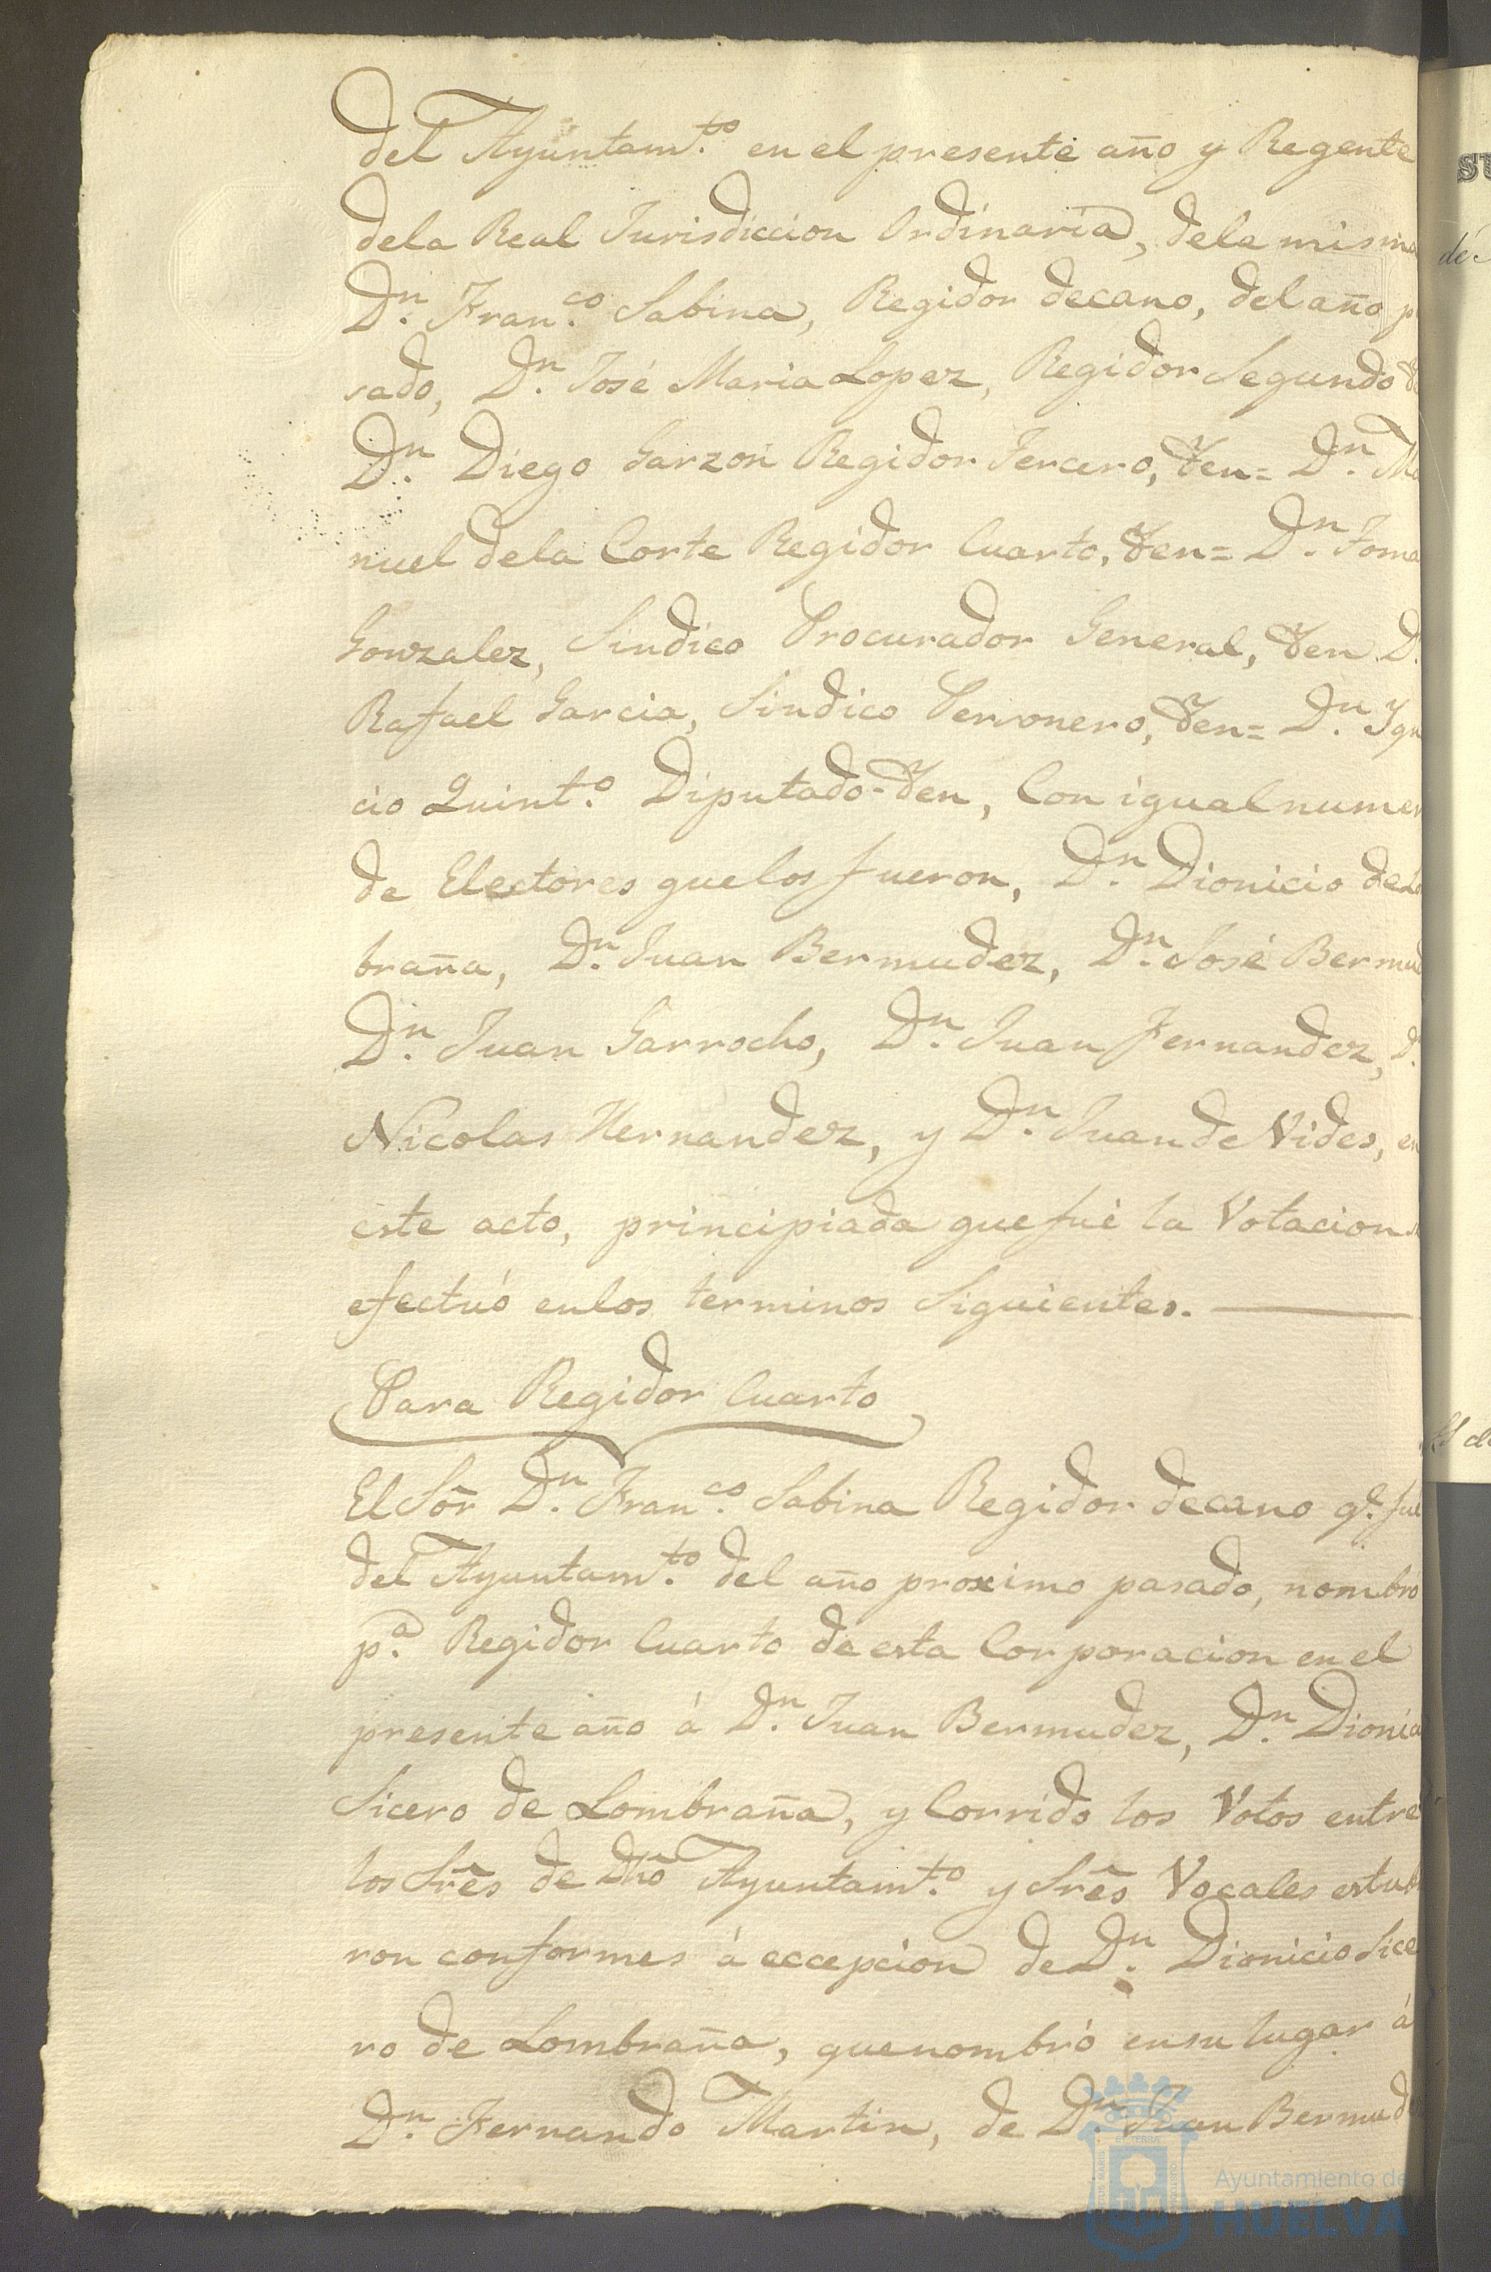 del Ayuntam.to en el presente año y Regente
dela Real Jurisdiccion Ordinaria, dela misma
Dn. Fran.co Sabina, Regidor decano, del año p
sado, Dn. José Maria Lopez, Regidor Segundo
Dn. Diego Garzon Regidor Tercero, Yden= Dn. Ma
nuel dela Corte Regidor Cuarto, Yden= Dn. Toma
Gonzalez, Sindico Procurador General, Yden D.
Rafael Garcia, Sindico Personero, Yden= Dn. Ygn
cio Quint.o Diputado-Yden, Con igual numer
de Electores que los fueron, Dn. Dionicio de Lo
braña, Dn. Juan Bermudez, Dn. José Bermud
Dn. Juan Garrocho, Dn. Juan Fernandez, D.
Nicolas Hernandez, y Dn. Juan de Vides, en
este acto, principiada que fué la Votacion
efectuó enlos terminos Siguientes.
Para Regidor Cuarto
El Sor Dn. Fran.co Sabina Regidor decano q.e fue
del Ayuntam.to del año proximo pasado, nombró
p.a Regidor Cuarto de esta Corporacion en el
presente año á Dn. Juan Bermudez, Dn. Dionicio
Sicero de Lombraña, y Corrido los Votos entre
los Sres de Dho Ayuntam.to y Sres Vocales estub
ron conformes á eccepcion de Dn. Dionicio Sice
ro de Lombraña, que nombró ensu lugar á
Dn. Fernando Martin, de Dn. Juan Bermud
Ayuntamiento de
HUELVA